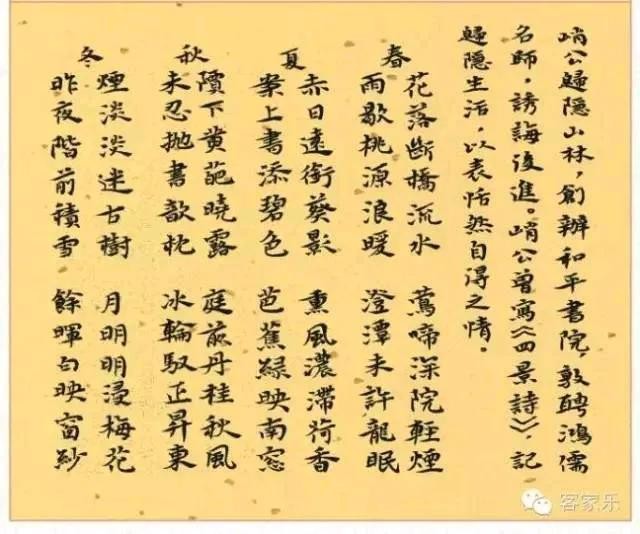 峭公歸隱山林，創辦和平書院，敦聘鴻儒
名師，誘誨後進。峭公曾寫《四景詩》，記
歸隱生活，以表恬然自得之情。
春
花落斷橋流水 鶯啼深院輕煙
雨歇桃源浪暖 澄潭未許龍眠
夏
赤日遠銜葵影 熏風濃滯荷香
案上書添碧色 芭蕉綠映南窓
秋
下黄葩曉露 庭前丹桂秋風
未忍抛書欹枕 冰輪馭正昇東
冬
煙淡淡迷古樹 月明明浸梅花
昨夜階前積雪 餘暉白映窗紗
客家乐